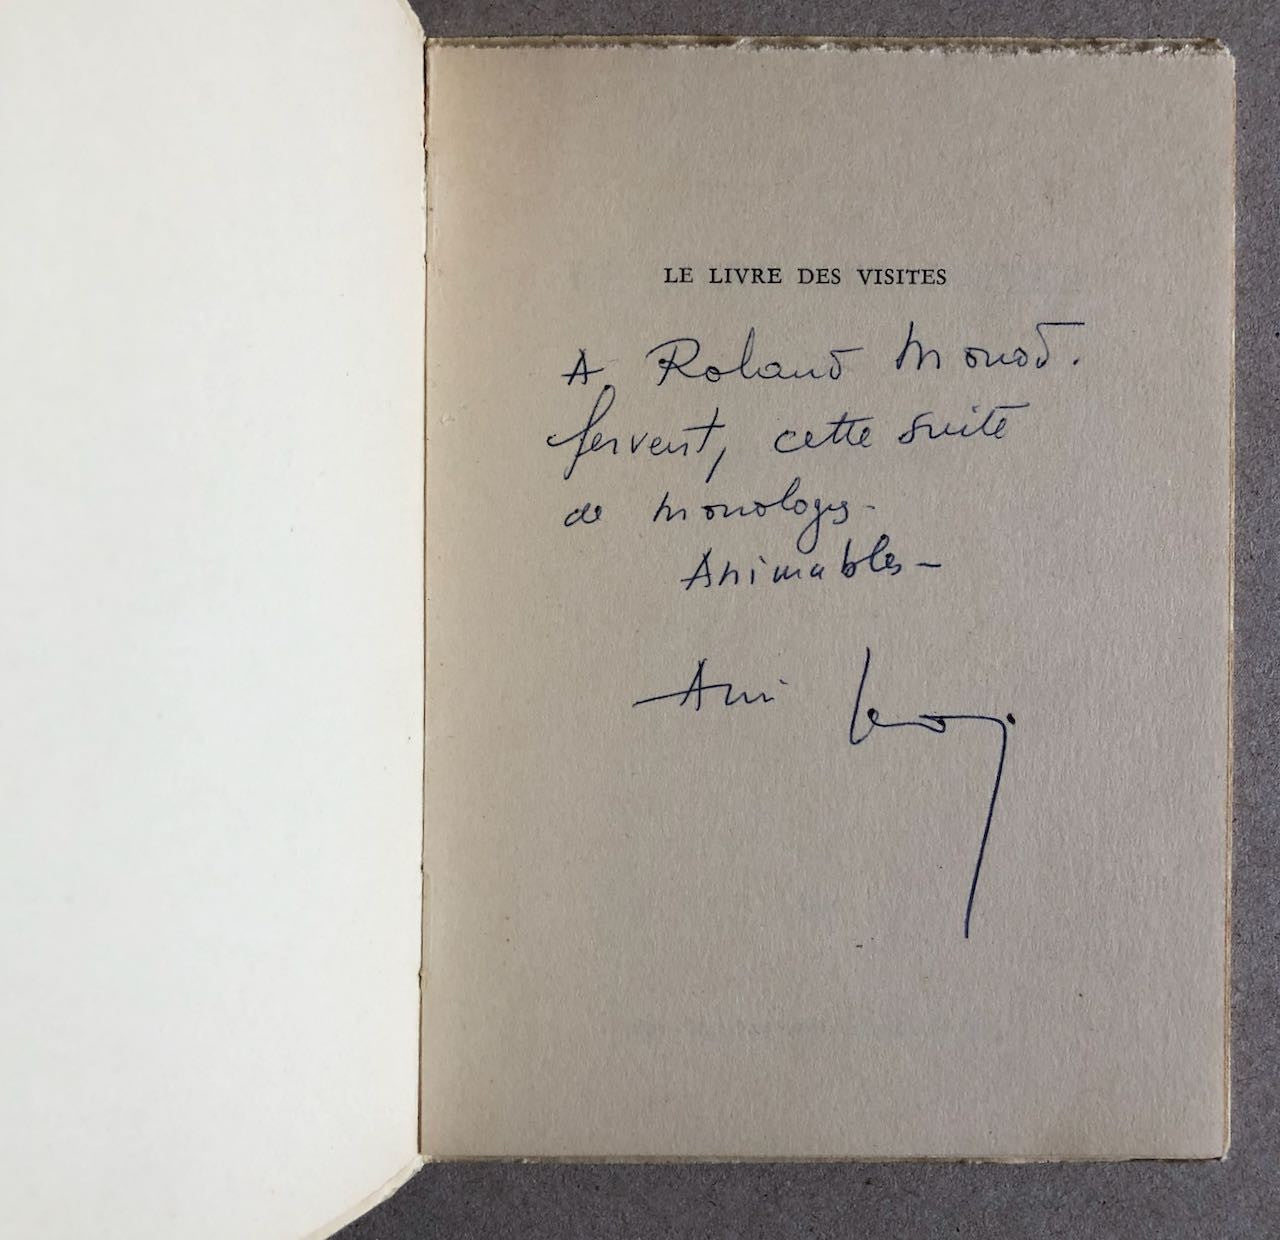 LE LIVRE DES VISITES
A Roland Monod.
fervent, cette suite
de monologues -
Animables -